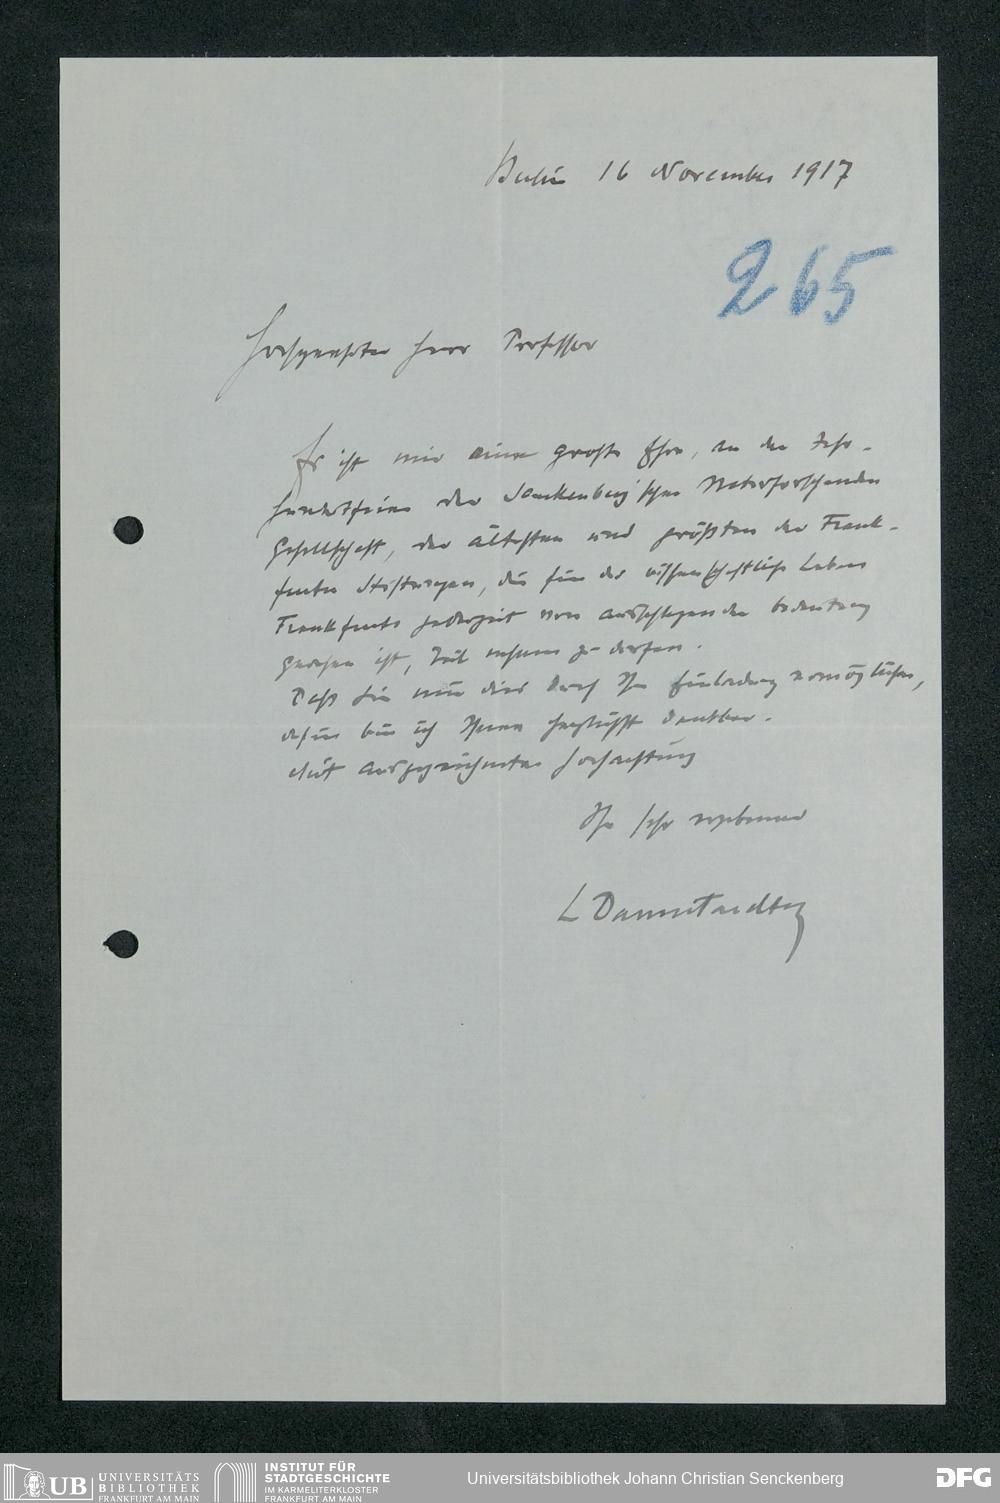 Berlin 16 November 1917
265
Hochgeehrter Herr Professor
Es ist mir eine große Ehre, an der Jahr-
hundertfeier der Senckenberg'schen Naturforschenden
Gesellschaft, der ältesten und größten der Frank-
furter Stiftungen, die für das wissenschaftliche Leben
Frankfurts jederzeit von ausschlaggebender Bedeutung
gewesen ist, Teil nehmen zu dürfen.
Daß Sie mir dies durch Ihre Einladung ermöglichen,
dafür bin ich Ihnen herzlichst dankbar.
Mit ausgezeichneter Hochachtung
Ihr sehr ergebener
L Darmstaedter
UB
UNIVERSITÄTS
BIBLIOTHEK
FRANKFURT AM MAIN
INSTITUT FÜR
STADTGESCHICHTE
IM KARMELITERKLOSTER
FRANKFURT AM MAIN
Universitätsbibliothek Johann Christian Senckenberg
DFG